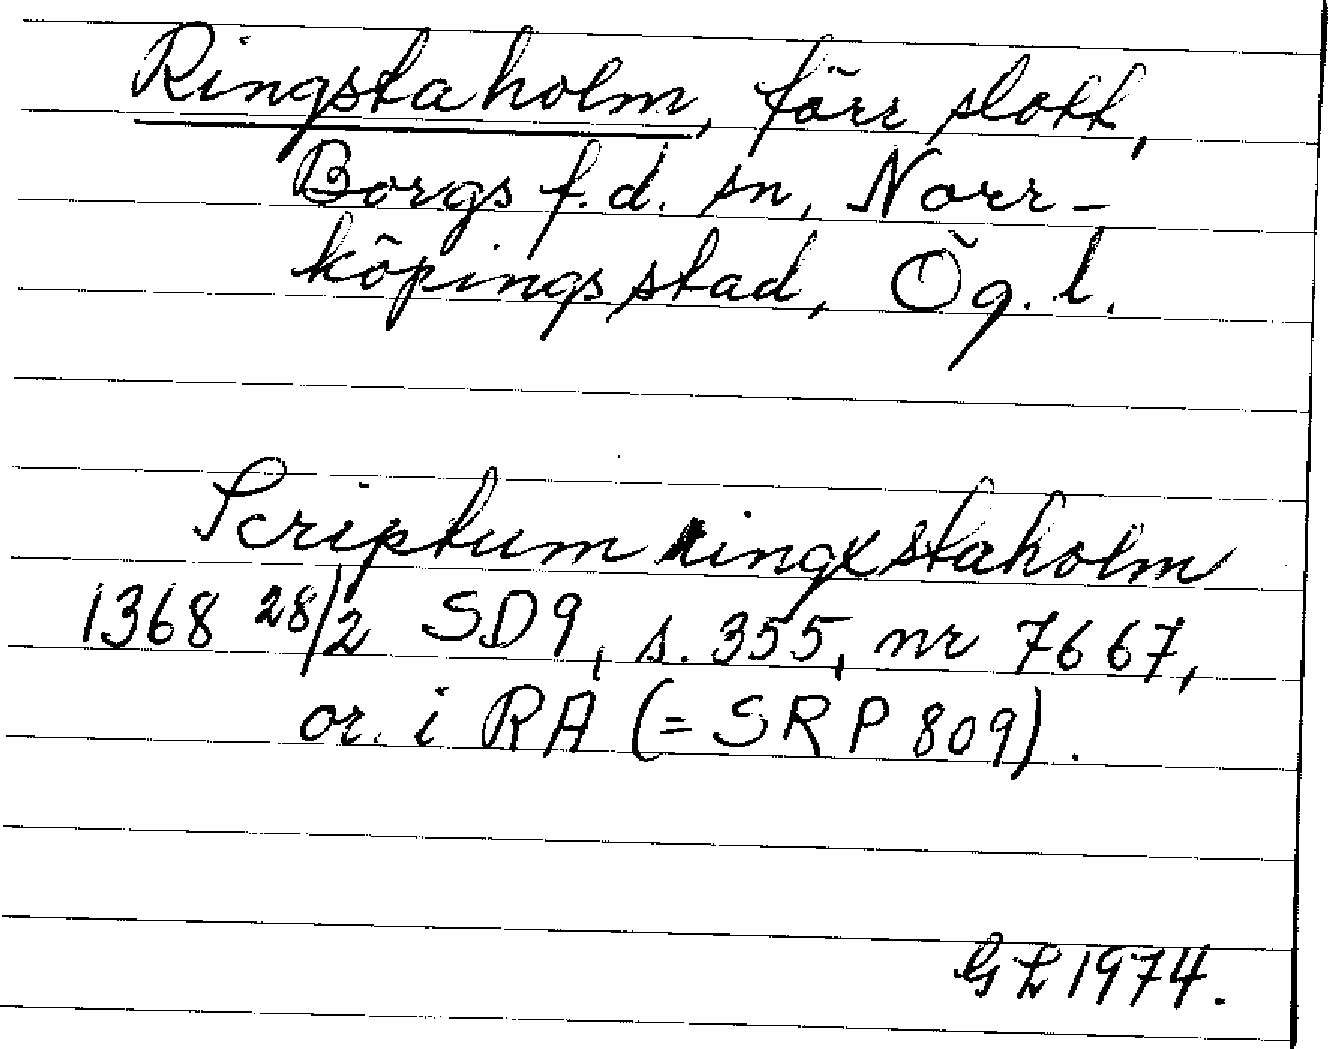 Ringstaholm, förr slott,
Borgs f.d. sn, Norr-
köpings stad, Ög. l.
Scriptum ringxstaholm
1368 28/2 SD9, s. 355, nr 7667,
or. i RA (= SRP 809).
GL 1974.